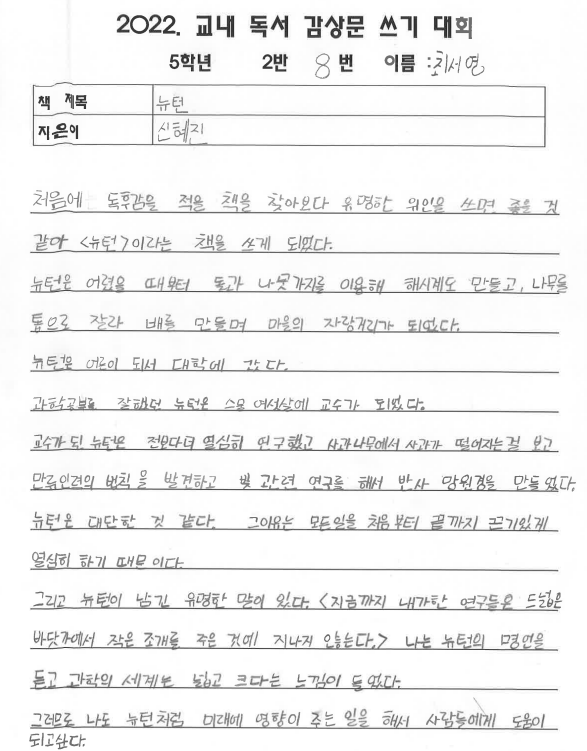 2022. 교내 독서 감상문 쓰기 대회
5학년 2반 8번 이름 : 최서연
책 제목 뉴턴
지은이 신혜진
처음에 독후감을 적을 책을 찾아보다 유명한 위인을 쓰면 좋을 것
같아 <뉴턴>이라는 책을 쓰게 되었다.
뉴턴은 어렸을 때부터 돌과 나뭇가지를 이용해 해시계도 만들고, 나무를
톱으로 잘라 배를 만들며 마을의 자랑거리가 되었다.
뉴턴은 어른이 되서 대학에 갔다.
과학공부를 잘했던 뉴턴은 스물 여섯살에 교수가 되었다.
교수가 된 뉴턴은 전보다더 열심히 연구했고 사과나무에서 사과가 떨어지는걸 보고
만류인력의 법칙을 발견하고 빛 관련 연구를 해서 반사 망원경을 만들었다.
뉴턴은 대단한 것 같다. 그이유는 모든일을 처음부터 끝까지 끈기있게
열심히 하기 때문이다.
그리고 뉴턴이 남긴 유명한 말이 있다. <지금까지 내가한 연구들은 드넓은
바닷가에서 작은 조개를 주운 것에 지나지 않는다.> 나는 뉴턴의 명언을
듣고 과학의 세계는 넓고 크다는 느낌이 들었다.
그러므로 나도 뉴턴처럼 미래에 영향이 주는 일을 해서 사람들에게 도움이
되고싶다.